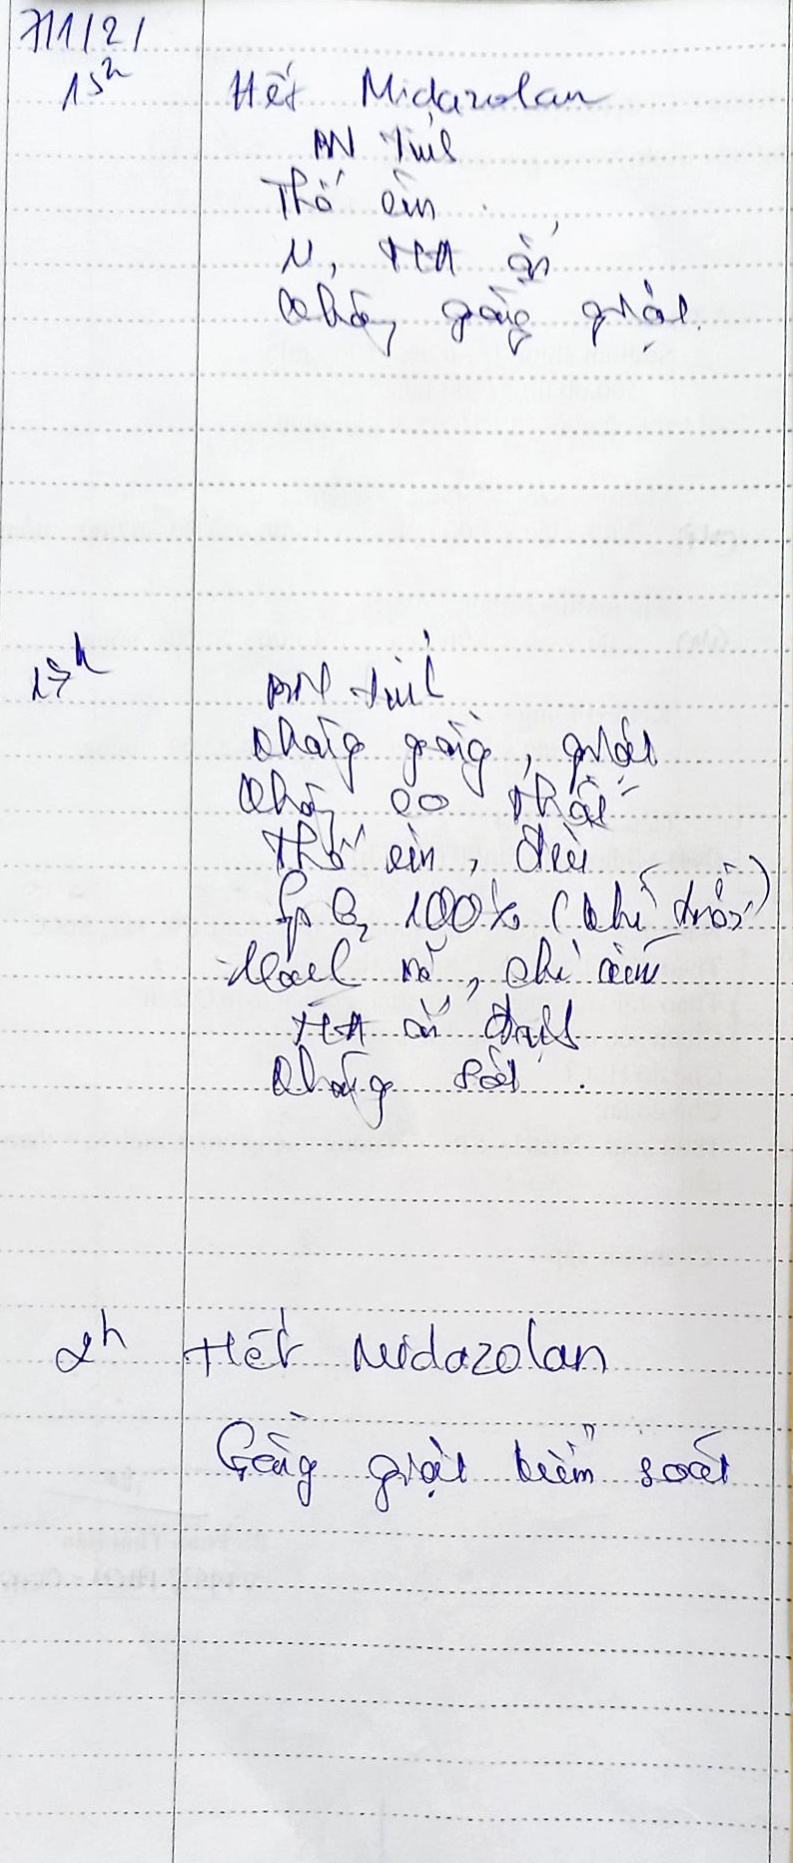 7/1/21
15h Hết Midazolam
BN tỉnh
Thở êm
M, HA ổn
Không gồng giật.
17h BN tỉnh
Không gồng, giật
Không co thắt
Thở êm, đều
SpO2 100% (khí trời)
Mạch rõ, chi ấm
HA ổn định
Không sốt.
2h Hết Midazolam
Gồng giật kiểm soát